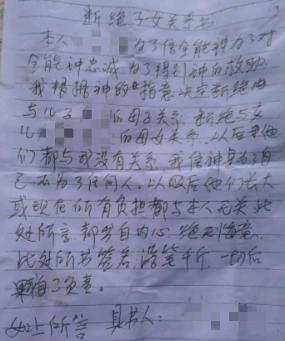 断绝子女关系书
本人 为了信全能神为了对
全能神忠诚为了得到神的救助
我根据神的旨意决定断绝由
与儿子 的母子关系,断绝与女
儿 的母女关系,以后 他
们都与我没有关系,我信神身为了自
己不为了任何人。以后他们长大
或现在所有负担都与本人无关此
处所言都出自内心绝 悔意
此处所书签名,落笔千斤一切后
果自己负责。
如上所言 具书人: